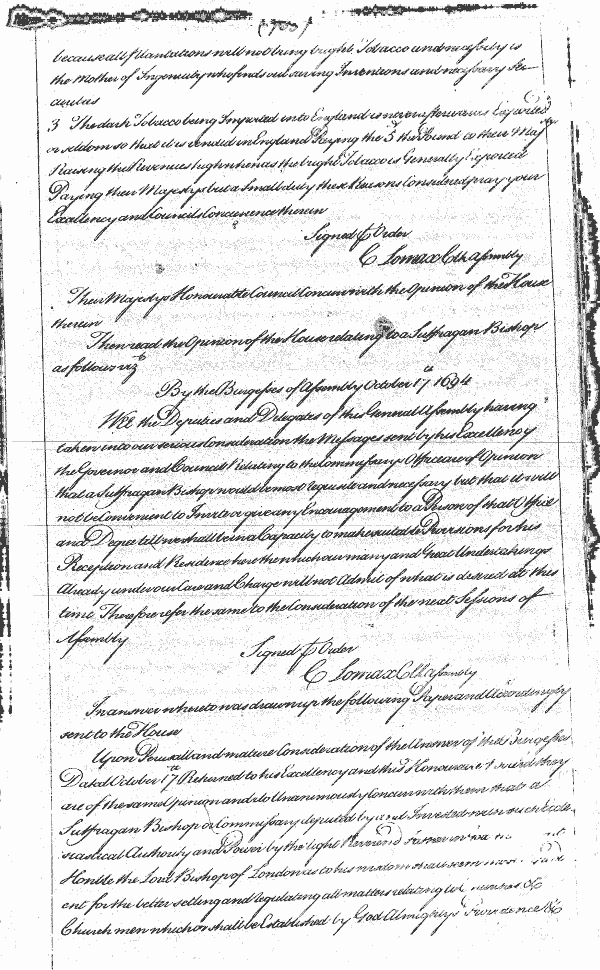 (703)
because all Plantations will not bring bright Tobacco and necessity is
the Mother of Ingenuity who finds out saving Inventions and necessary
dustus
3 The dark Tobacco being Imported into England is never afterwards Exported
or seldom so that it is vended in England Paying the 5 the Pound to their Majtys
Raising the Revenues high when as the bright Tobacco is Generally Exported
Paying their Majestys but a Small duty these Reasons Considered pray your
Excellency and Councils Concurrence therein
Signed ⅌ Order
C Lomax Clk Assembly
Their Majestys Honourable Council Concur with the Opinion of the House
therein
Then read the Opinion of the House relating to a Suffragan Bishop
as follows vizt
By the Burgesses of Assembly October 17th 1694
Wee the Deputies and Delegates of this General Assembly having
taken into our serious Consideration the Messages sent by his Excellency
the Governor and Council Relating to the Commissary Office are of Opinion
that a Suffragan Bishop would be most requisite and necessary but that it will
not be Convenient to Invite or give any Encouragement to a Person of that Office
and Degree till we shall be in a Capacity to make suitable Provisions for his
Reception and Residence here the which our many and Great Undertakings
Already under our Care and Charge will not Admit of what is desired at this
time Therefore refer the same to the Consideration of the next Sessions of
Assembly
Signed ⅌ Order
C Lomax Clk Assembly
In answer whereto was drawn up the following Paper and Accordingly
sent to the House
Upon Perusall and mature Consideration of the Answer of the Burgesses
Dated October 17th Returned to his Excellency and this Honourable Board they
are of the same Opinion and do Unanimously Concur with them that a
Suffragan Bishop or Commissary deputed by and Invested with such Eccle
siastical Authority and Power by the Right Reverend Father in God
Honble the Lord Bishop of London as to his wisdom shall seem
ent for the better setling and regulating all matters relating to
Church men which or shall be Established by God Almightys Providence &c